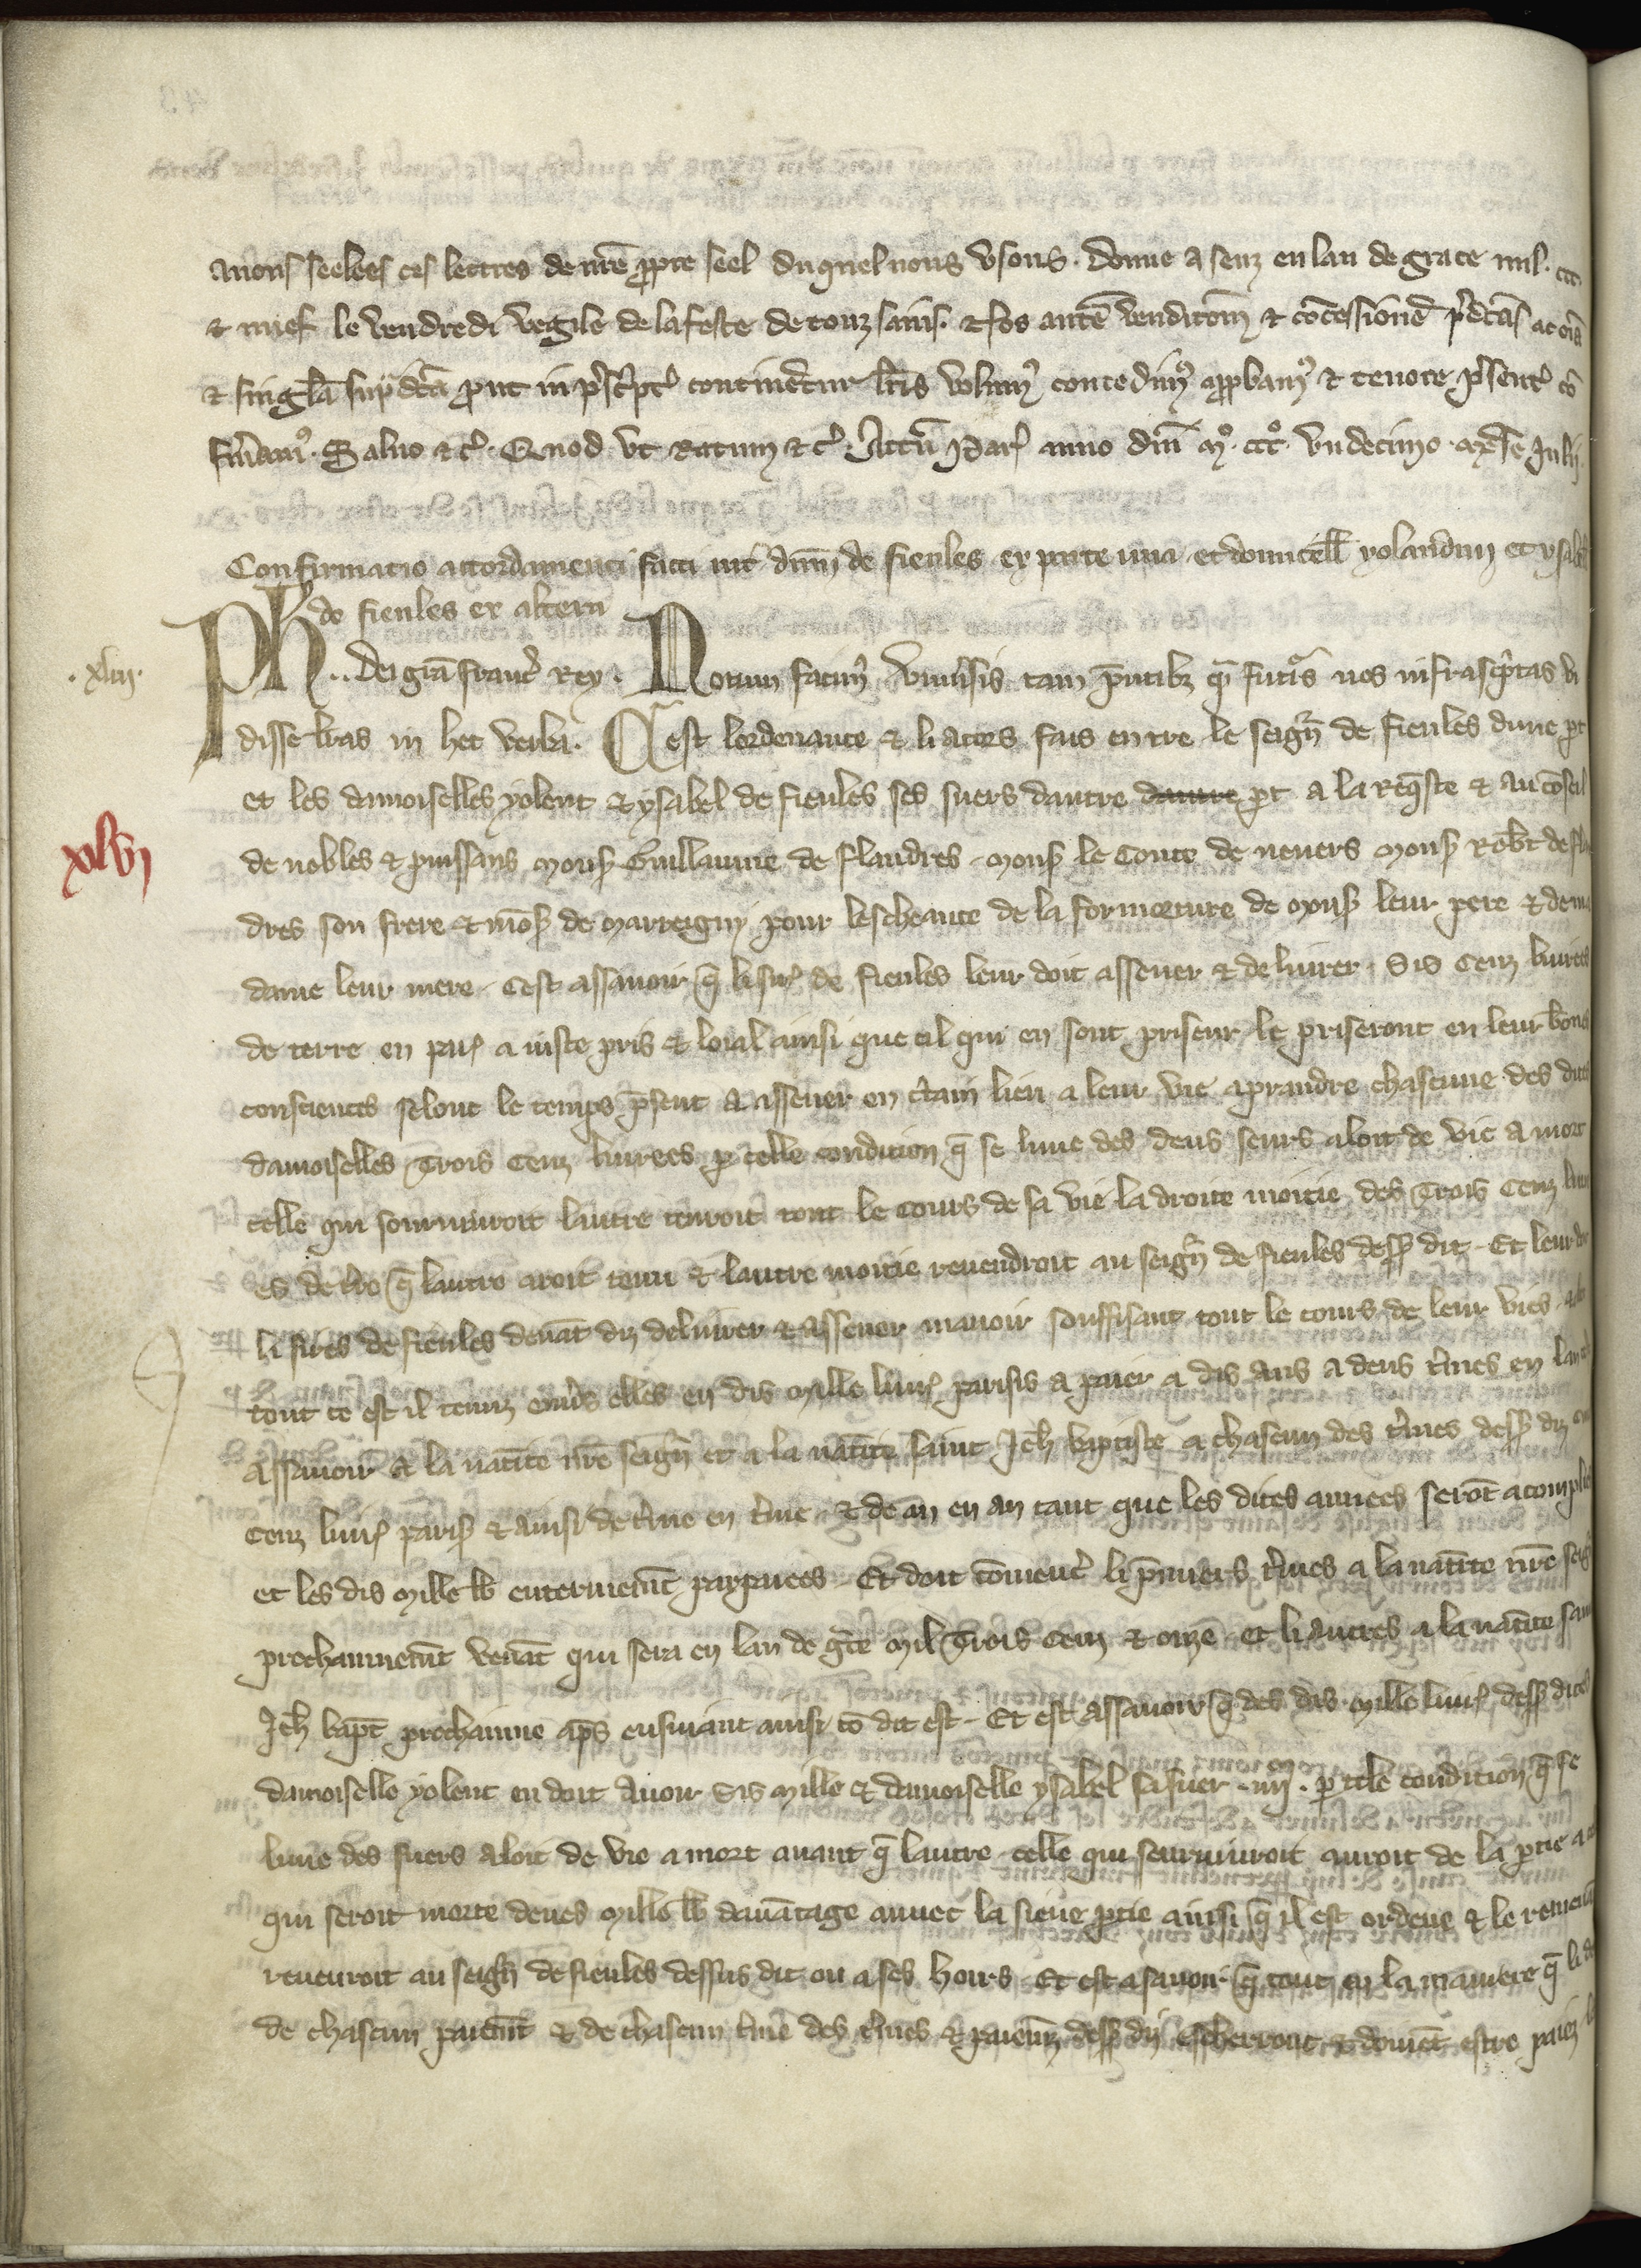 auons seelees ces lettres de nr̃e ꝓpre seel duquel nous vsons. Donne a senz en lan de grace mil. ccc.
⁊ nuef le vendredi vegile de la feste de touz sains. Nos autẽ venditionẽ ⁊ cõcessionẽ p̃dictas ac oĩa
⁊ singl̃a sup̃dicta ꝓut in p̃scriptꝭ continent᷑ur lr̃is volumꝰ concedimꝰ app̃bamꝰ ⁊ tenore p̃sentꝭ cõ
firmamꝰ. Saluo ⁊ cꝭ. Quod vt Ratum ⁊ cꝭ. Actũ Parꝭ anno dñi mº. cccº. vndecimo. mẽse Julij.
Confirmatio accordamenti facti int̃ dñm de fieules ex parte vna et domicell̃ yolandim et ysabell̃
de fieules ex altera
.xlvi.
Ph̃.. dei gr̃a francꝭ Rex. Notum facimꝰ vniu̾sis tam p̃ntibꝫ q̃ futĩs nos infrasc̾ptas vi
disse lr̃as in hec verba. Cest lordenance ⁊ li acors fais entre le seign̾ de fieules dune ꝑt
et les damoiselles yolent ⁊ ysabel de fieules ses suers dautre dautre ꝑt a la req̃ste ⁊ au cõseil
xlvj
de nobles ⁊ puissans monsꝭ Guillaume de flandres monsꝭ le Conte de neuers monsꝭ Rob̾t de fl
dres son frere ⁊ mõsꝭ de Marreigny pour lescheance de la formorture de monsꝭ leur pere ⁊ de ma
dame leur mere. Cest assauoir q̃ li sirꝭ de fieules leur doit assener ⁊ deliurer. Sis Cenz liurees
de terre en parꝭ a iuste pris ⁊ loial ainsi que cil qui en sont priseur le priseront en leur bones
consciences selonc le temps p̃sent a assener en c̾tain lieu a leur vie a prandre chascune des dites
damoiselles Trois Cenz liurees ꝑ celle condition q̃ se lune des deus seurs aloit de vie a mort
celle qui souruiuroit lautre tenroit tout le cours de sa vie la droite moitie des Trois Cenz liure
es de terre q̃ lautre aroit tenu ⁊ lautre moitie reuendroit au seign̾ de fieules dessꝭ dit. Et leur doit
li sires de fieules deuãt diz deliurer ⁊ assener manoir souffisant tout le cours de leur vies.
tout ce est il tenuz enu̾s elles en dis mille liurꝭ parisis a paier a dis ans a deus t̾mes en lan
assauoir a la natiuite nr̃e seign̾ et a la natiuite saint Jeh̃ baptiste a chascun des t̾mes dessꝭ diz
Cenz liurꝭ parisꝭ ⁊ ainsi de t̾me en t̾me ⁊ de an en an tant que les dites annees serõt acomplies
et les dis mille lb̃ enterinem̃t parpaiees. Et doit cõmencꝭ li p̃miers t̾mes a la natiuite nr̃e seign̾
prochainnem̃t venãt qui sera en lan de gr̃ce Mil Trois Cenz ⁊ onze et li autres a la natiuite saint
Jeh̃ bapt̃ prochainne ap̃s ensuiuant ainsi cõ dit est. Et est assauoir q̃ des dis mille liurꝭ dessꝭ dites
damoiselle yolent en doit auoir Sis Mille ⁊ damoiselle ysabel sa suer .iiij. ꝑ tele condition q̃ se
lune des suers aloit de vie a mort auant q̃ lautre celle qui seuruiuroit auroit de la ꝑtie a
qui seroit morte deues Mille lb̃ dauãtage auuec la sieue ꝑtie ainsi q̃ il est ordene ⁊ le remenãt
reuenroit au seign̾ de fieules dessus dit ou a ses hoirs. Et est asauoir q̃ tout en la maniere q̃ li
de chascun paiem̃t ⁊ de chascun t̾me des t̾mes ⁊ paiem̃z dessꝭ diz escherront ⁊ doiuẽt estre paiez